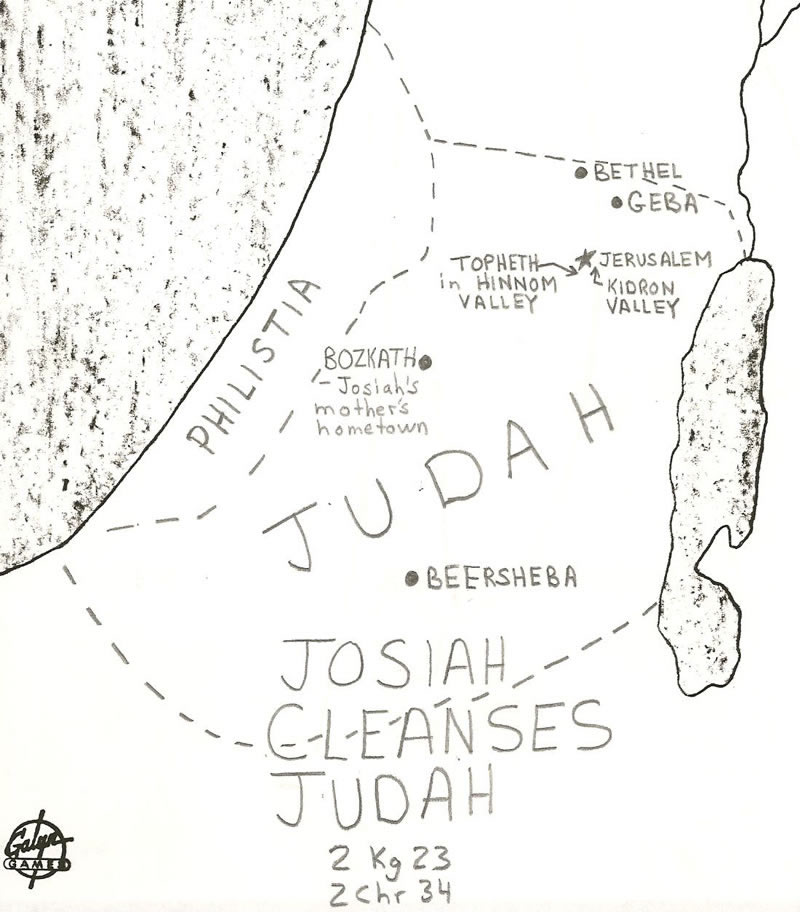 BETHEL
GEBA
TOPHETH
in HINNOM
VALLEY
JERUSALEM
KIDRON
VALLEY
PHILISTIA
BOZKATH
- Josiah's
mother's
hometown
JUDAH
BEERSHEBA
JOSIAH
CLEANSES
JUDAH
2 Kg 23
2 Chr 34
Galyn
GAMES